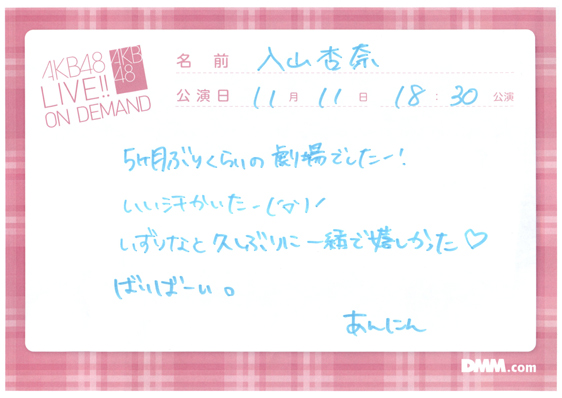 AKB48
LIVE!!
ON DEMAND
AKB
48
名前 入山杏奈
公演日 11月11日 18:30公演
5ヶ月ぶりくらいの劇場でしたー!
いい汗かいたー(^o^)/
いずりなと久しぶりに一緒で嬉しかった♡
ばいばーい。
あんにん
DMM.com